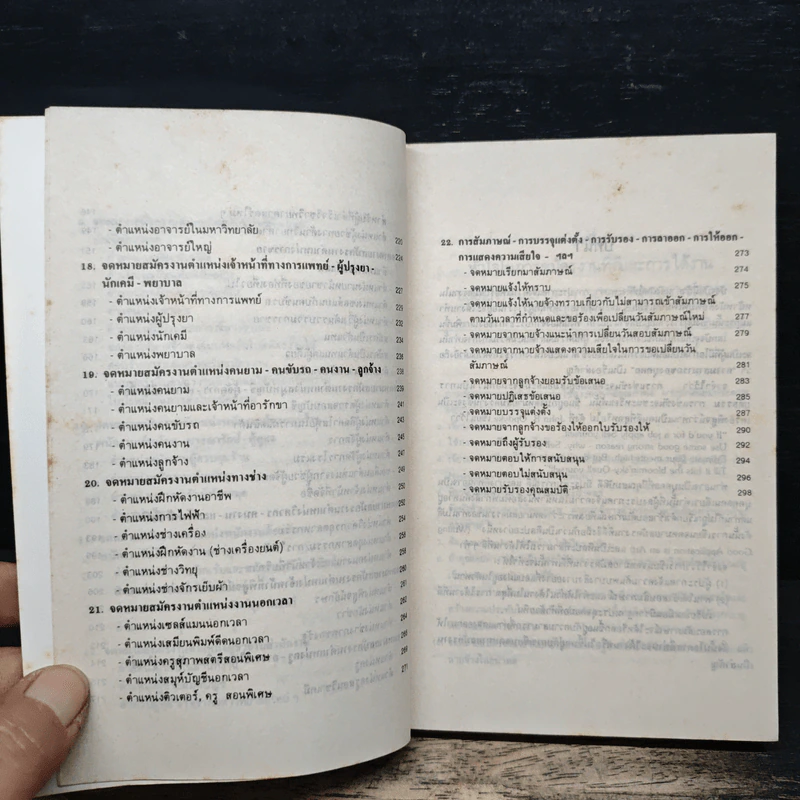 - ตำแหน่งอาจารย์ในมหาวิทยาลัย
- ตำแหน่งอาจารย์ใหญ่
18. จดหมายสมัครงานตำแหน่งเจ้าหน้าที่ทางการแพทย์ - ผู้ปรุงยา -
นักเคมี - พยาบาล 227
- ตำแหน่งเจ้าหน้าที่ทางการแพทย์
- ตำแหน่งผู้ปรุงยา
- ตำแหน่งนักเคมี
- ตำแหน่งพยาบาล 236
19. จดหมายสมัครงานตำแหน่งคนยาม - คนขับรถ - คนงาน - ลูกจ้าง
- ตำแหน่งคนยาม
- ตำแหน่งคนยามและเจ้าหน้าที่อารักขา 241
- ตำแหน่งคนขับรถ
- ตำแหน่งคนงาน
- ตำแหน่งลูกจ้าง
20. จดหมายสมัครงานตำแหน่งทางช่าง
- ตำแหน่งฝึกหัดงานอาชีพ
- ตำแหน่งการไฟฟ้า
- ตำแหน่งช่างเครื่อง
- ตำแหน่งฝึกหัดงาน (ช่างเครื่องยนต์)
- ตำแหน่งช่างวิทยุ
- ตำแหน่งช่างจักรเย็บผ้า
21. จดหมายสมัครงานตำแหน่งงานนอกเวลา
- ตำแหน่งเซลส์แมนนอกเวลา
- ตำแหน่งเสมียนพิมพ์ดีดนอกเวลา
- ตำแหน่งครูสุภาพสตรีสอนพิเศษ
- ตำแหน่งสมุห์บัญชีนอกเวลา
- ตำแหน่งติวเตอร์, ครู สอนพิเศษ
22. การสัมภาษณ์ - การบรรจุแต่งตั้ง - การรับรอง - การลาออก - การให้ออก -
การแสดงความเสียใจ - ฯลฯ 273
- จดหมายเรียกมาสัมภาษณ์ 274
- จดหมายแจ้งให้ทราบ 275
- จดหมายแจ้งให้นายจ้างทราบเกี่ยวกับไม่สามารถเข้าสัมภาษณ์
ตามวันเวลาที่กำหนดและขอร้องเพื่อเปลี่ยนวันสัมภาษณ์ใหม่ 277
- จดหมายจากนายจ้างแนะนำการเปลี่ยนวันสอบสัมภาษณ์ 279
- จดหมายจากนายจ้างแสดงความเสียใจในการขอเปลี่ยนวัน
สัมภาษณ์ 281
- จดหมายจากลูกจ้างยอมรับข้อเสนอ 283
- จดหมายปฏิเสธข้อเสนอ 285
- จดหมายบรรจุแต่งตั้ง 287
- จดหมายจากลูกจ้างขอร้องให้ออกใบรับรองให้ 290
- จดหมายถึงผู้รับรอง 292
- จดหมายตอบให้การสนับสนุน 294
- จดหมายตอบไม่สนับสนุน 296
- จดหมายรับรองคุณสมบัติ 298